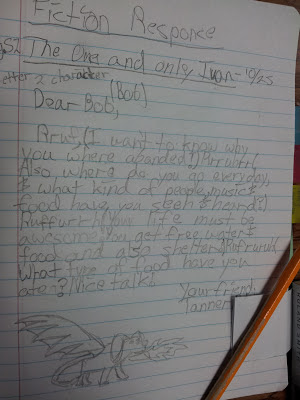 Fiction Responce
S2 The One and only Ivan 10/25
letter 2 character (Bob)
Dear Bob,
Aruf,(I want to know why
you where abanded?)
Also where do you go everyday,
& what kind of people, music &
food have you seen & heard?)
Ruffurrh(Your life must be
awesome you get free water &
food and also shelter)
What type of food have you
aten? Nice talk!
Your friend,
Tanner